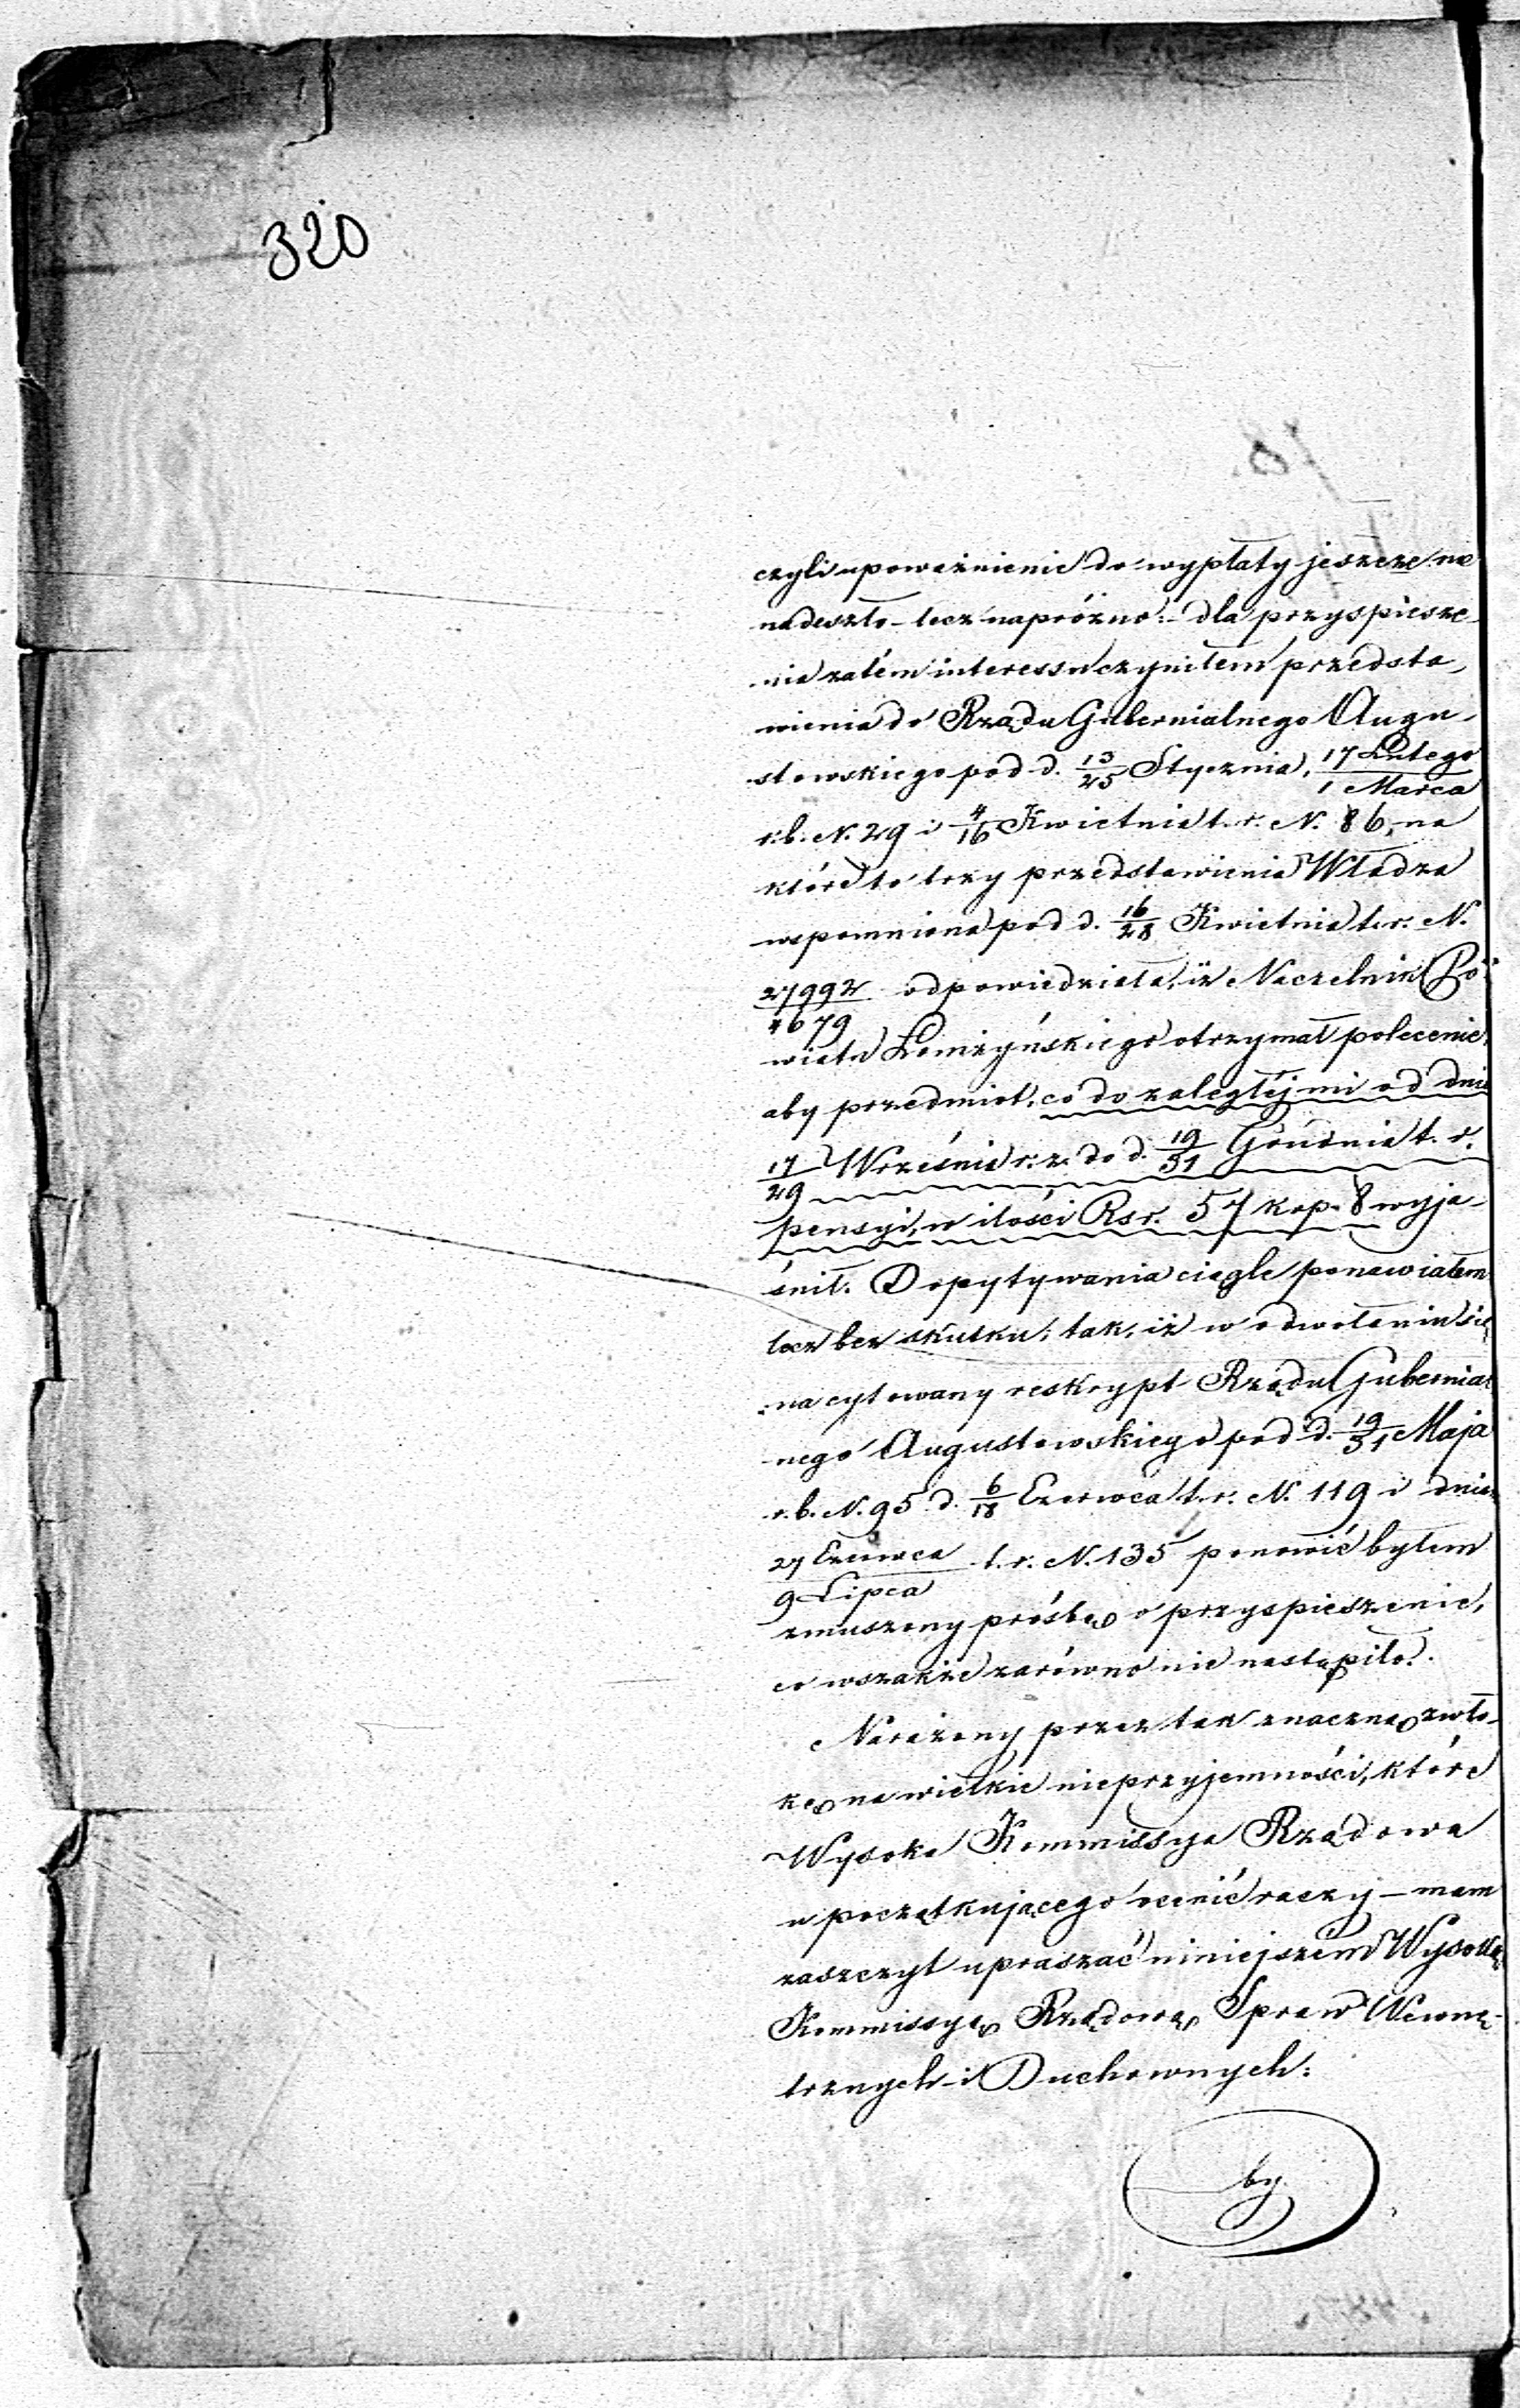 320
czyli upoważnienie do wypłaty jeszcze nie
nadeszło – lecz napróżno: – dla przyspiesze-
nia zatém interessu czyniłem przedsta-
wienia do Rządu Gubernialnego Augu-
stowskiego pod d. 13/25 Stycznia, 17 Lutego/1 Marca
r. b. N. 29 i 4/16 Kwietnia t. r. N. 86, na
które to trzy przedstawienia Władza
wspomniona pod d. 16/28 Kwietnia t. r. N.
27992/4679 odpowiedziała, iż Naczelnik Po-
wiatu Łomżyńskiego otrzymał polecenie,
aby przedmiot, co do zaległéj mi od dnia
17/29 Września r. z. do d. 19/31 Grudnia t. r.
pensyi, w ilości Rsr. 57 kop. 8 wyja-
śnił. Dopytywania ciągle ponawiałem
lecz bez skutku; tak, iż w odwołaniu się
na cytowany reskrypt Rządu Gubernial-
nego Augustowskiego pod d. 19/31 Maja
r. b. N. 95 d. 6/18 Czerwca t. r. N. 119 i dnia
27 Czerwca/9 Lipca t. r. N. 135 ponowić byłem
zmuszony prośbę o przyspieszenie,
co wszakże zarówno nie nastąpiło.
Narażony przez tak znaczną zwło-
kę na wielkie nieprzyjemności, które
Wysoka Kommissya Rządowa
u początkującego ocenić raczy – mam
zaszczyt upraszać niniejszém Wysoką
Kommissyę Rządową Spraw Wewnę-
trznych i Duchownych:
by